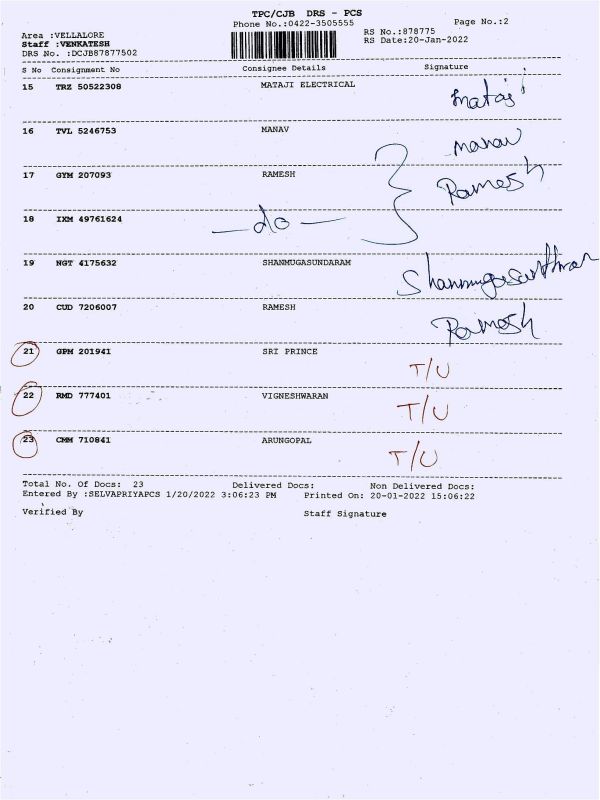 TPC/CJB DRS - PCS
Phone No.:0422-3505555 Page No.:2
Area :VELLALORE RS No.:878775
Staff :VENKATESH RS Date:20-Jan-2022
DRS No. :DCJB87877502
S No Consignment No Consignee Details Signature
15 TRZ 50522308 MATAJI ELECTRICAL Mataji
16 TVL 5246753 MANAV Manav
17 GYM 207093 RAMESH Ramesh
18 IXM 49761624 — do —
19 NGT 4175632 SHANMUGASUNDARAM
20 CUD 7206007 RAMESH Ramesh
21 GPM 201941 SRI PRINCE T/U
22 RMD 777401 VIGNESHWARAN T/U
23 CMM 710841 ARUNGOPAL T/U
Total No. Of Docs: 23 Delivered Docs: Non Delivered Docs:
Entered By :SELVAPRIYAPCS 1/20/2022 3:06:23 PM Printed On: 20-01-2022 15:06:22
Verified By Staff Signature